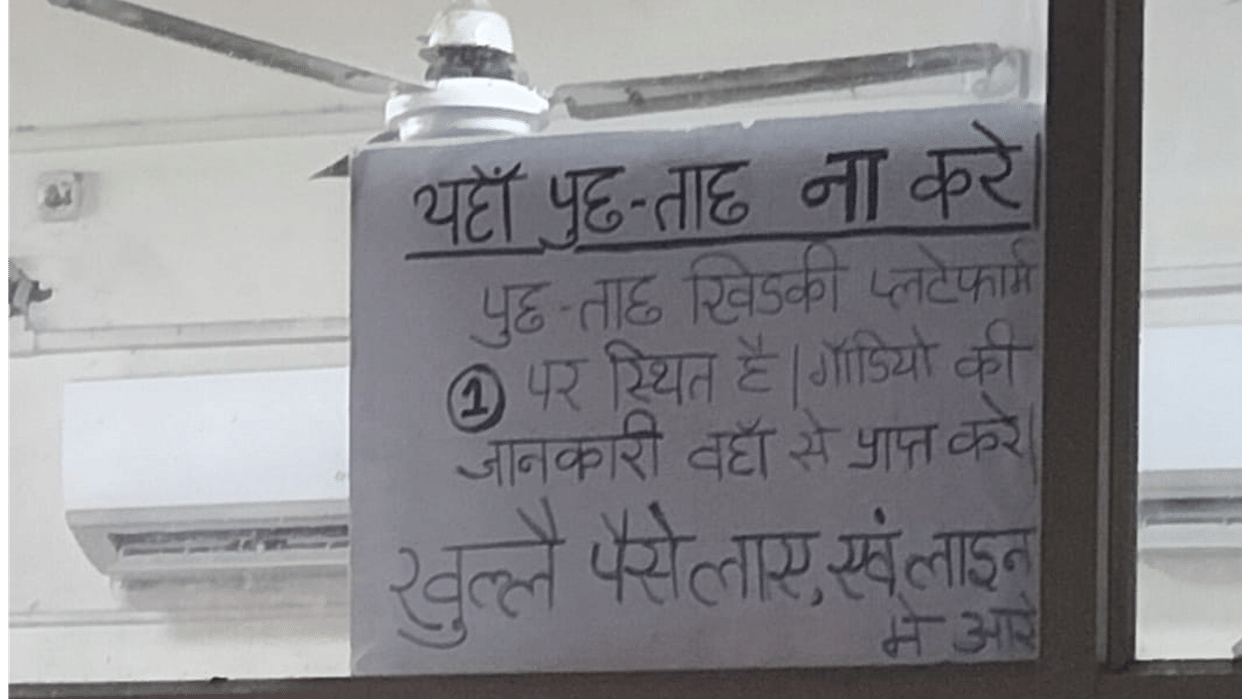 यहाँ पुछ-ताछ ना करे|
पुछ-ताछ खिडकी प्लटेफार्म
① पर स्थित है | गाॅडियो की
जानकारी वहाॅ से प्राप्त करे|
खुल्लै पैसे लाए, एवं लाइन
मे आऐ